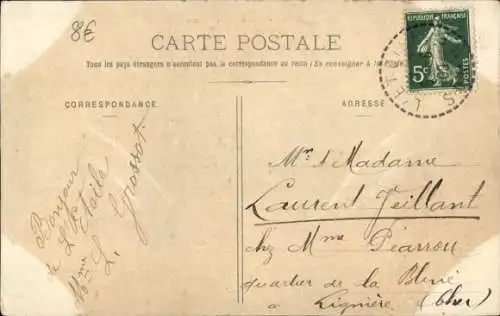 8€
CARTE POSTALE
Tous les pays étrangers n'acceptent pas la correspondance au recto (Se renseigner à la Poste)
CORRESPONDANCE
ADRESSE
REPUBLIQUE FRANÇAISE
5c
POSTES
Bonjour
de L'Etoile
Mme L. Grossot
Mr & Madame
Laurent Teillant
chez Mme Péarron
quartier de la
à Lignière (Cher)